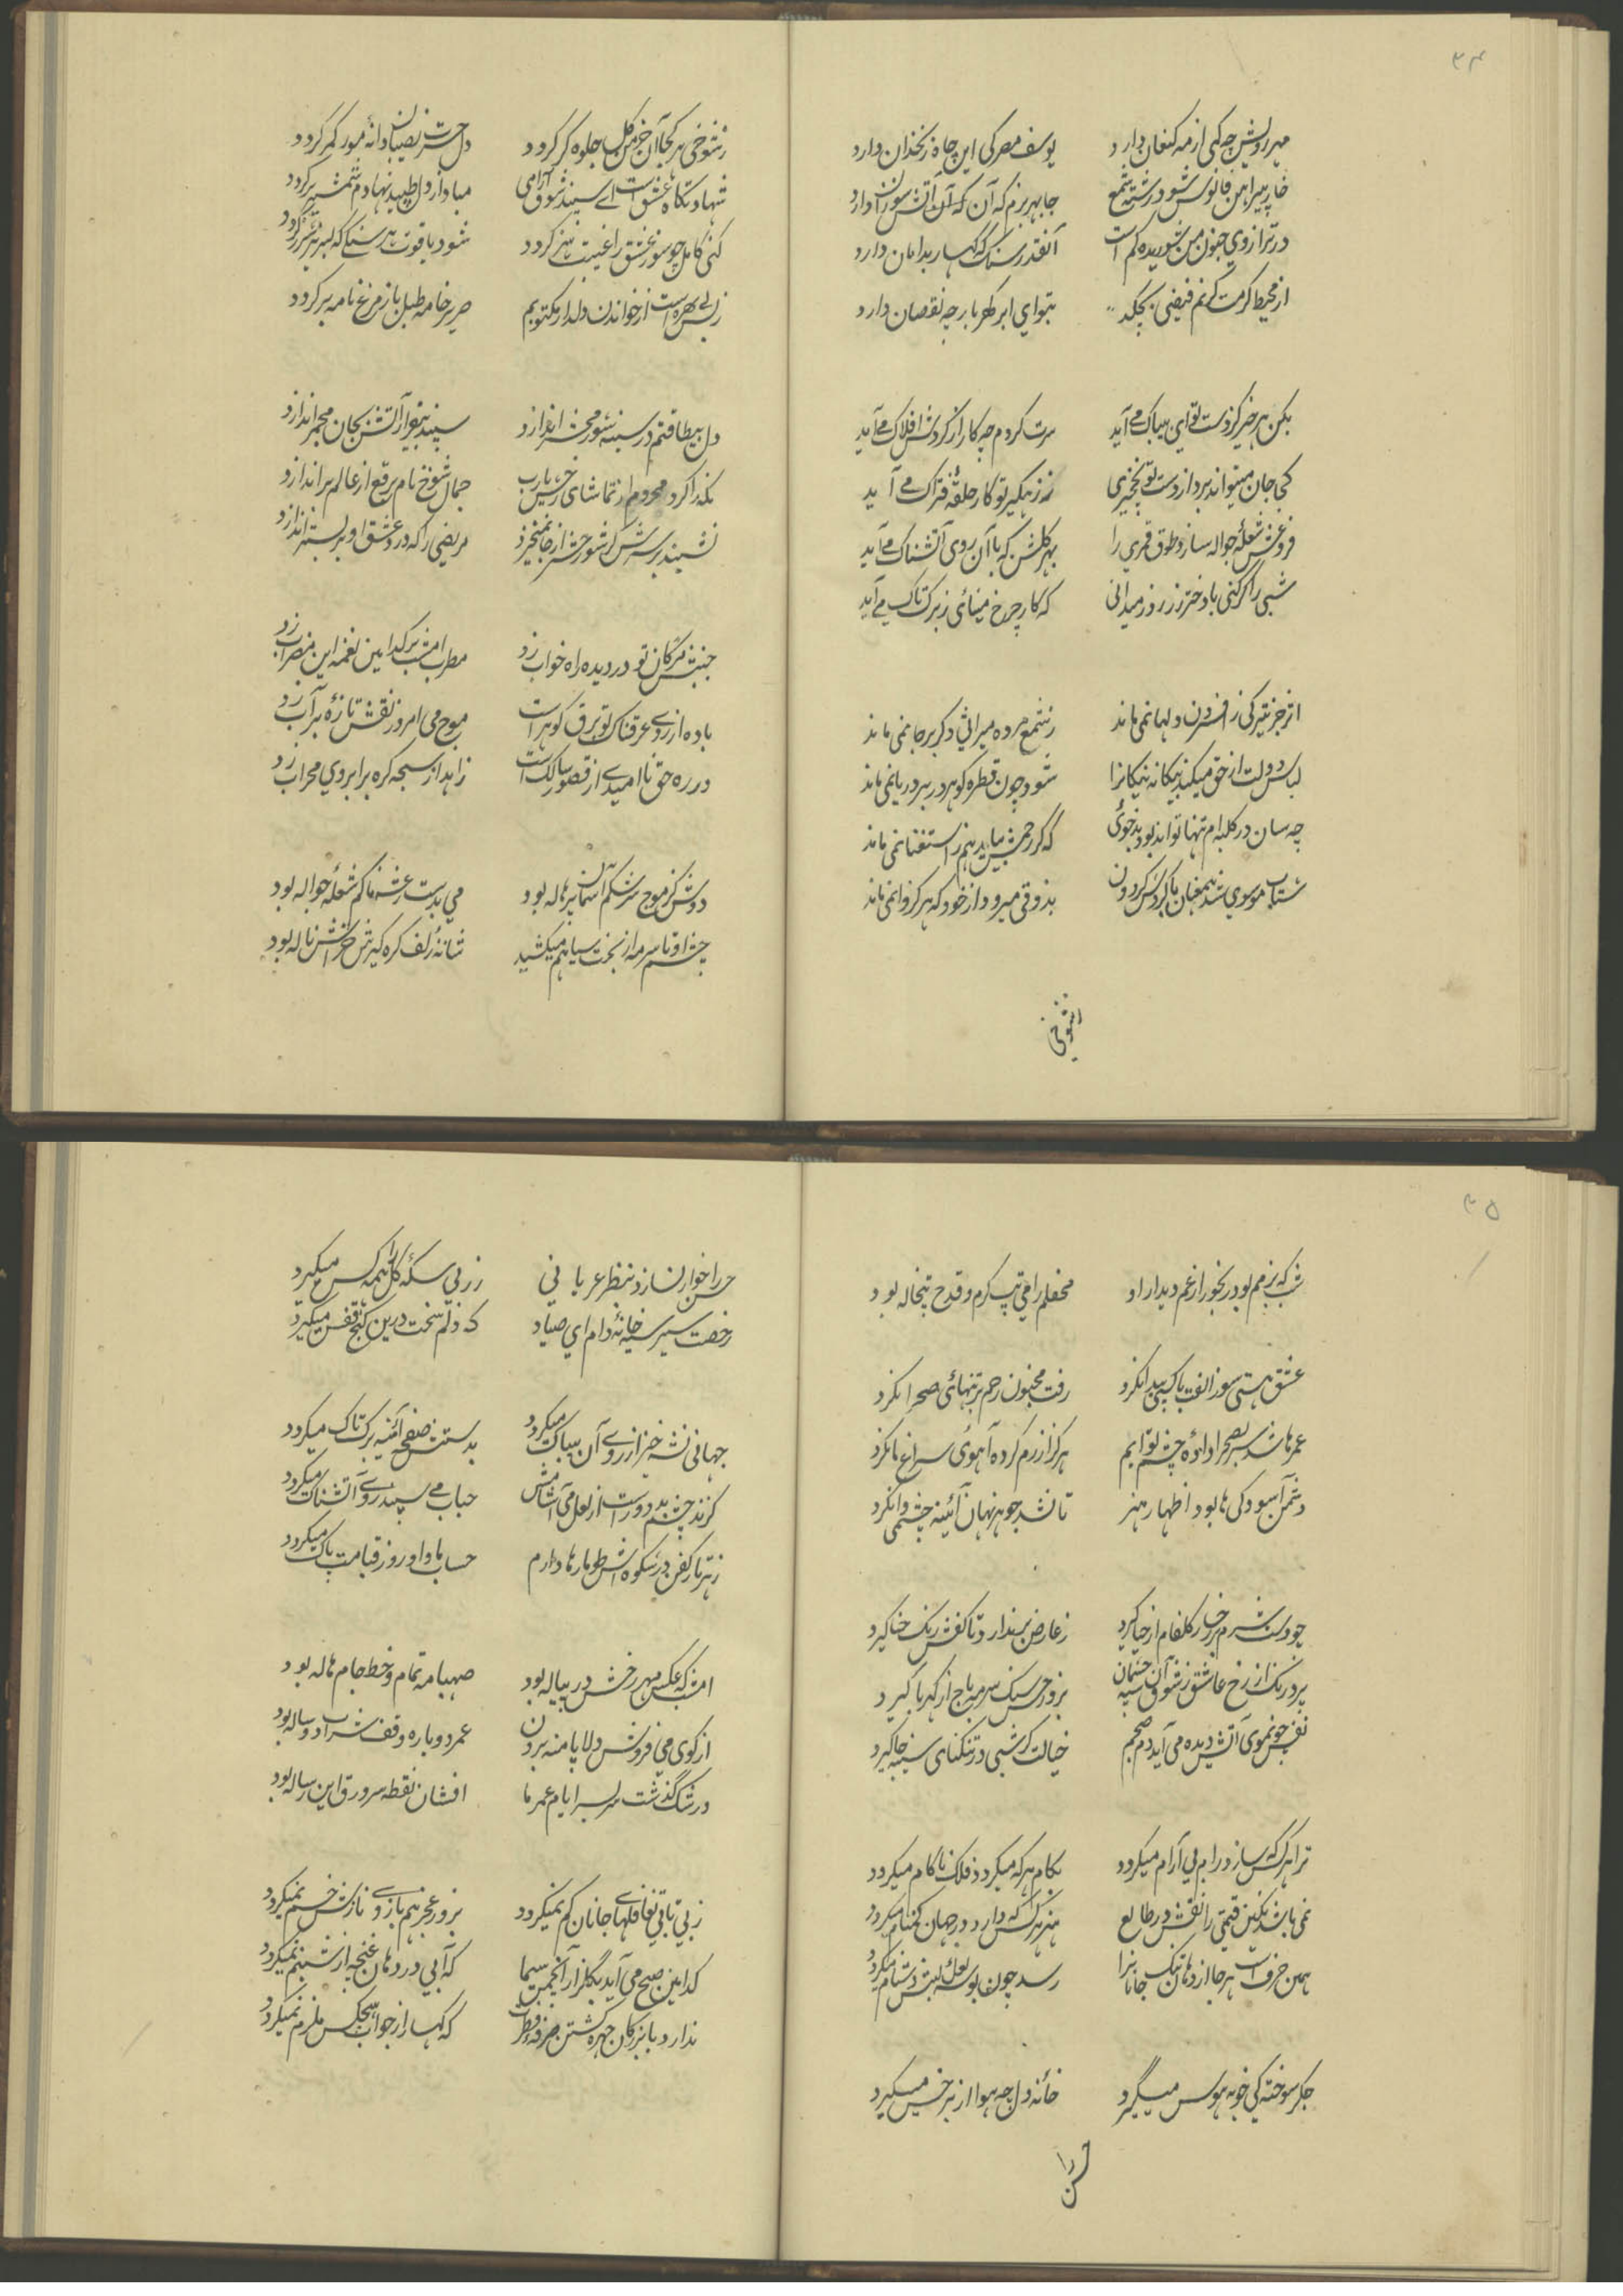 ۳۴
مهر رویش چه کمی از مه کنعان دارد یوسف مصر کی این چاه زنخدان دارد
خار پیراهن فانوس شود رشته شمع جا بهر بزم که آن آتش سوزان دارد
در ترازوی جنون من شوریده کم است آنقدر سنگ که کهسار بدامان دارد
از محیط کرمت گر نم فیضی بچکد بتو ای ابر گهربار چه نقصان دارد
بکن هر جز کز دست تو ای بیباک می آید سرت کردم چه کار از کردش افلاک می آید
کجا جان میتواند برد از دست تو نخچیری نه زهکیر تو کار حلقه فتراک می آید
فروغش شعله جواله سازد طوق قمری را بهر کلشن که با آن روی آتشناک می آید
شبی را کر کنی با دختر رز روز میدانی که کار چرخ مینائی ز برک تاک می آید
اثر جز تیرکی ز افسردن دلها نمی ماند ز شمع مرده میراثی دکر بر جا نمی ماند
لباس دولت از حق میکند بیکانه نیکانرا شود چون قطره کوهر در بر دریا نمی ماند
چه سان در کلبه ام تنها تواند بود بدخوئی که کر وحشت بیاید هم ز استغنا نمی ماند
شتاب موسوی شد همعنان با کردش کردون بذوقی میرود از خود که هرکز وا نمی ماند
ز شوخی
ز شوخی هر کجا آن خرمن کل جلوه کر کردد دل حسرت نصیبان دانه مور کمر کردد
شهادتکاه عشق است ای سپند شوق آرامی مبادا از دل طپیدنها دم شمشیر برکردد
کنی کامل چو سوز عشق را غیبت هنر کردد شود یاقوت هر سنکی که لبریز شرر کردد
ز بس بی بهره است از خواندن دلدار مکتوبم صریر خامه طبل باز مرغ نامه بر کردد
دل بیطاقتم در سینه شور محشر اندازد سپند بیقرار آتش بجان مجمر اندازد
نکه را کرد محروم از تماشای رخش یارب جمال شوخ نام برقع از عالم براندازد
نشیند بر سرش کر شور حشر از جا نمیخیزد مریضی را که درد عشق او بر بستر اندازد
جنبش مژکان تو در دیده راه خواب زد مطرب امشب بر کدامین نغمه این مضراب زد
باده از روی عرقناک تو برق کوهر است موج می امروز نقش تازه بر آب زد
در ره حق ناامیدی از قصور سالک است زاهد از سبحه کره بر ابروی محراب زد
دوش کز موج سرشکم آسمان پر هاله بود می بدست رعشه ناکم شعله جواله بود
چشم او تا سرمه از بخت سیاهم میکشید شانه زلف کره کیرش خراش ناله بود
۳۵
شب که بزمم بود رنجور از غم دیدار او محفلم را می تب کرم و قدح تبخاله بود
عشق هستی سوز الفت با کسی پیدا نکرد رفت مجنون رحم بر تنهائی صحرا نکرد
عمرها شد سر بصحرا داده چشم توایم هرکز از رم کرده آهوئی سراغ ما نکرد
دشمن آسودکی ها بود اظهار هنر تا نشد جوهر نهان آئینه چشمی وا نکرد
چو دست شرم بر رخسار کلفام از حیا کیرد ز عارض بر ندارد تا کفش رنک حنا کیرد
پرد رنک از رخ عاشق ز شوق آن سیه چشمان بزور حسن سنک سرمه باج از کهربا کیرد
نفس چون موی آتش دیده می آید دم صبحم خیالت کر شبی در تنکنای سینه جا کیرد
ترا هر کس که سازد رام بی آرام میکردد بکام هر که میکردد فلک ناکام میکردد
نمی باشد نکین قیمتی را نقش در طالع هنر هر کس که دارد در جهان کمنام میکردد
همین حرف است هر جا از دهان تنک جانانرا رسد چون بوسه لعل لبش دشنام میکردد
جکر سوخته کی خو به هوس میگیرد خانه دل چه هوا از پر خس میکیرد
حسن را
حسن را خوار نسازد بنظر عریانی زر بی سکه کل را همه کس میکیرد
رخصت سیر سیه خانه دام ای صیاد که دلم سخت درین کنج قفس میکیرد
جهانی نشه خیز از روی آن بیباک میکردد بدستش صفحه آئینه برک تاک میکردد
کزند چشم بد دور است از لعل می آشامش حباب می سپند روی آتشناک میکردد
ز هر تار کفن در شکوه اش طومارها دارم حساب ما و او روز قیامت پاک میکردد
امشب که عکس مهر رخش در پیاله بود صهبا مه تمام و خط جام هاله بود
از کوی می فروش دلا پا منه برون عمر دوباره وقف شراب دو ساله بود
در شک گذشت سربسر ایام عمر ما افشان نقطه سرورق این رساله بود
ز بی تابی تغافلهای جانان کم نمیکردد بزور عجز هم بازوی نازش خم نمیکردد
کدامین صبح می آید بگلزار آنجمن سیما که آبی در دهان غنجه از شبنم نمیکردد
ندارد با بزرکان چهره کشتن صرفه فطرت که کهسار از جواب هیچکس ملزم نمیکردد